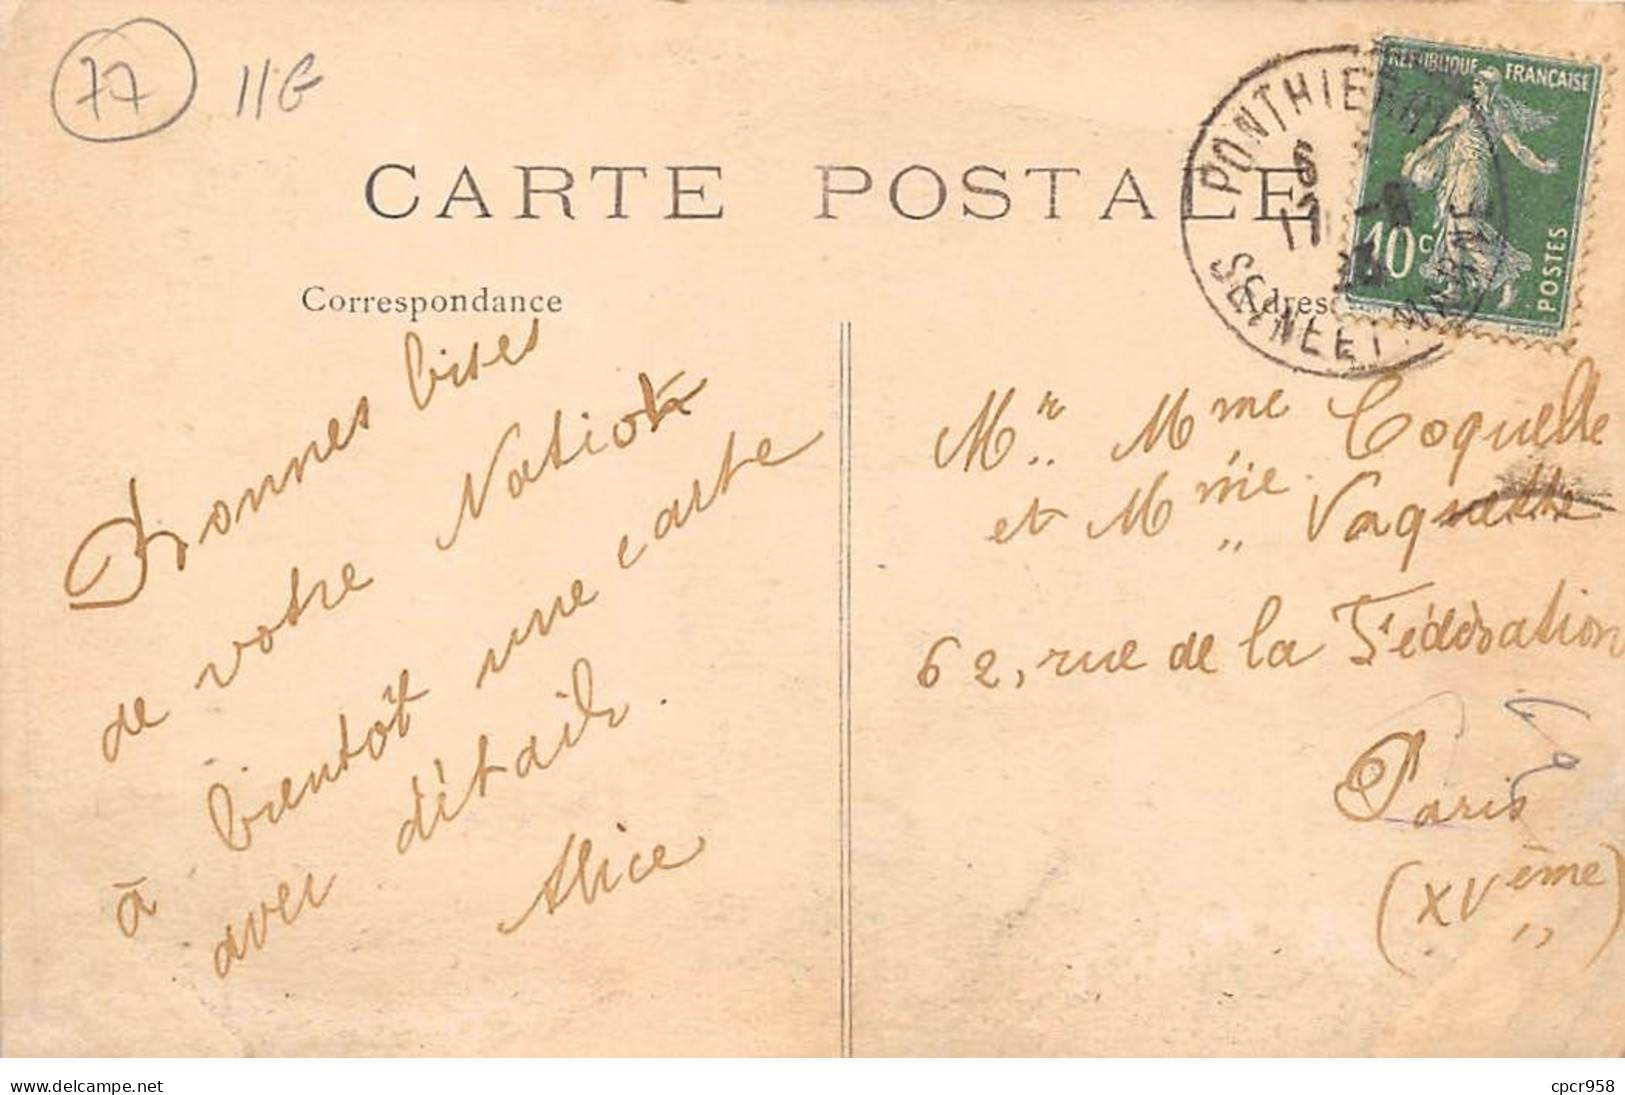 77 11G
CARTE POSTALE
RÉPUBLIQUE FRANÇAISE
10c
POSTES
PONTHIERRY
SEINE ET MARNE
Correspondance
Adresse
Bonnes bises
de votre
à bientôt une carte
avec détails.
Alice
Mr. Mme Coquelle
et Mme Vaquette
62, rue de la Fédération
Paris
(XVème)
www.delcampe.net
cpcr958